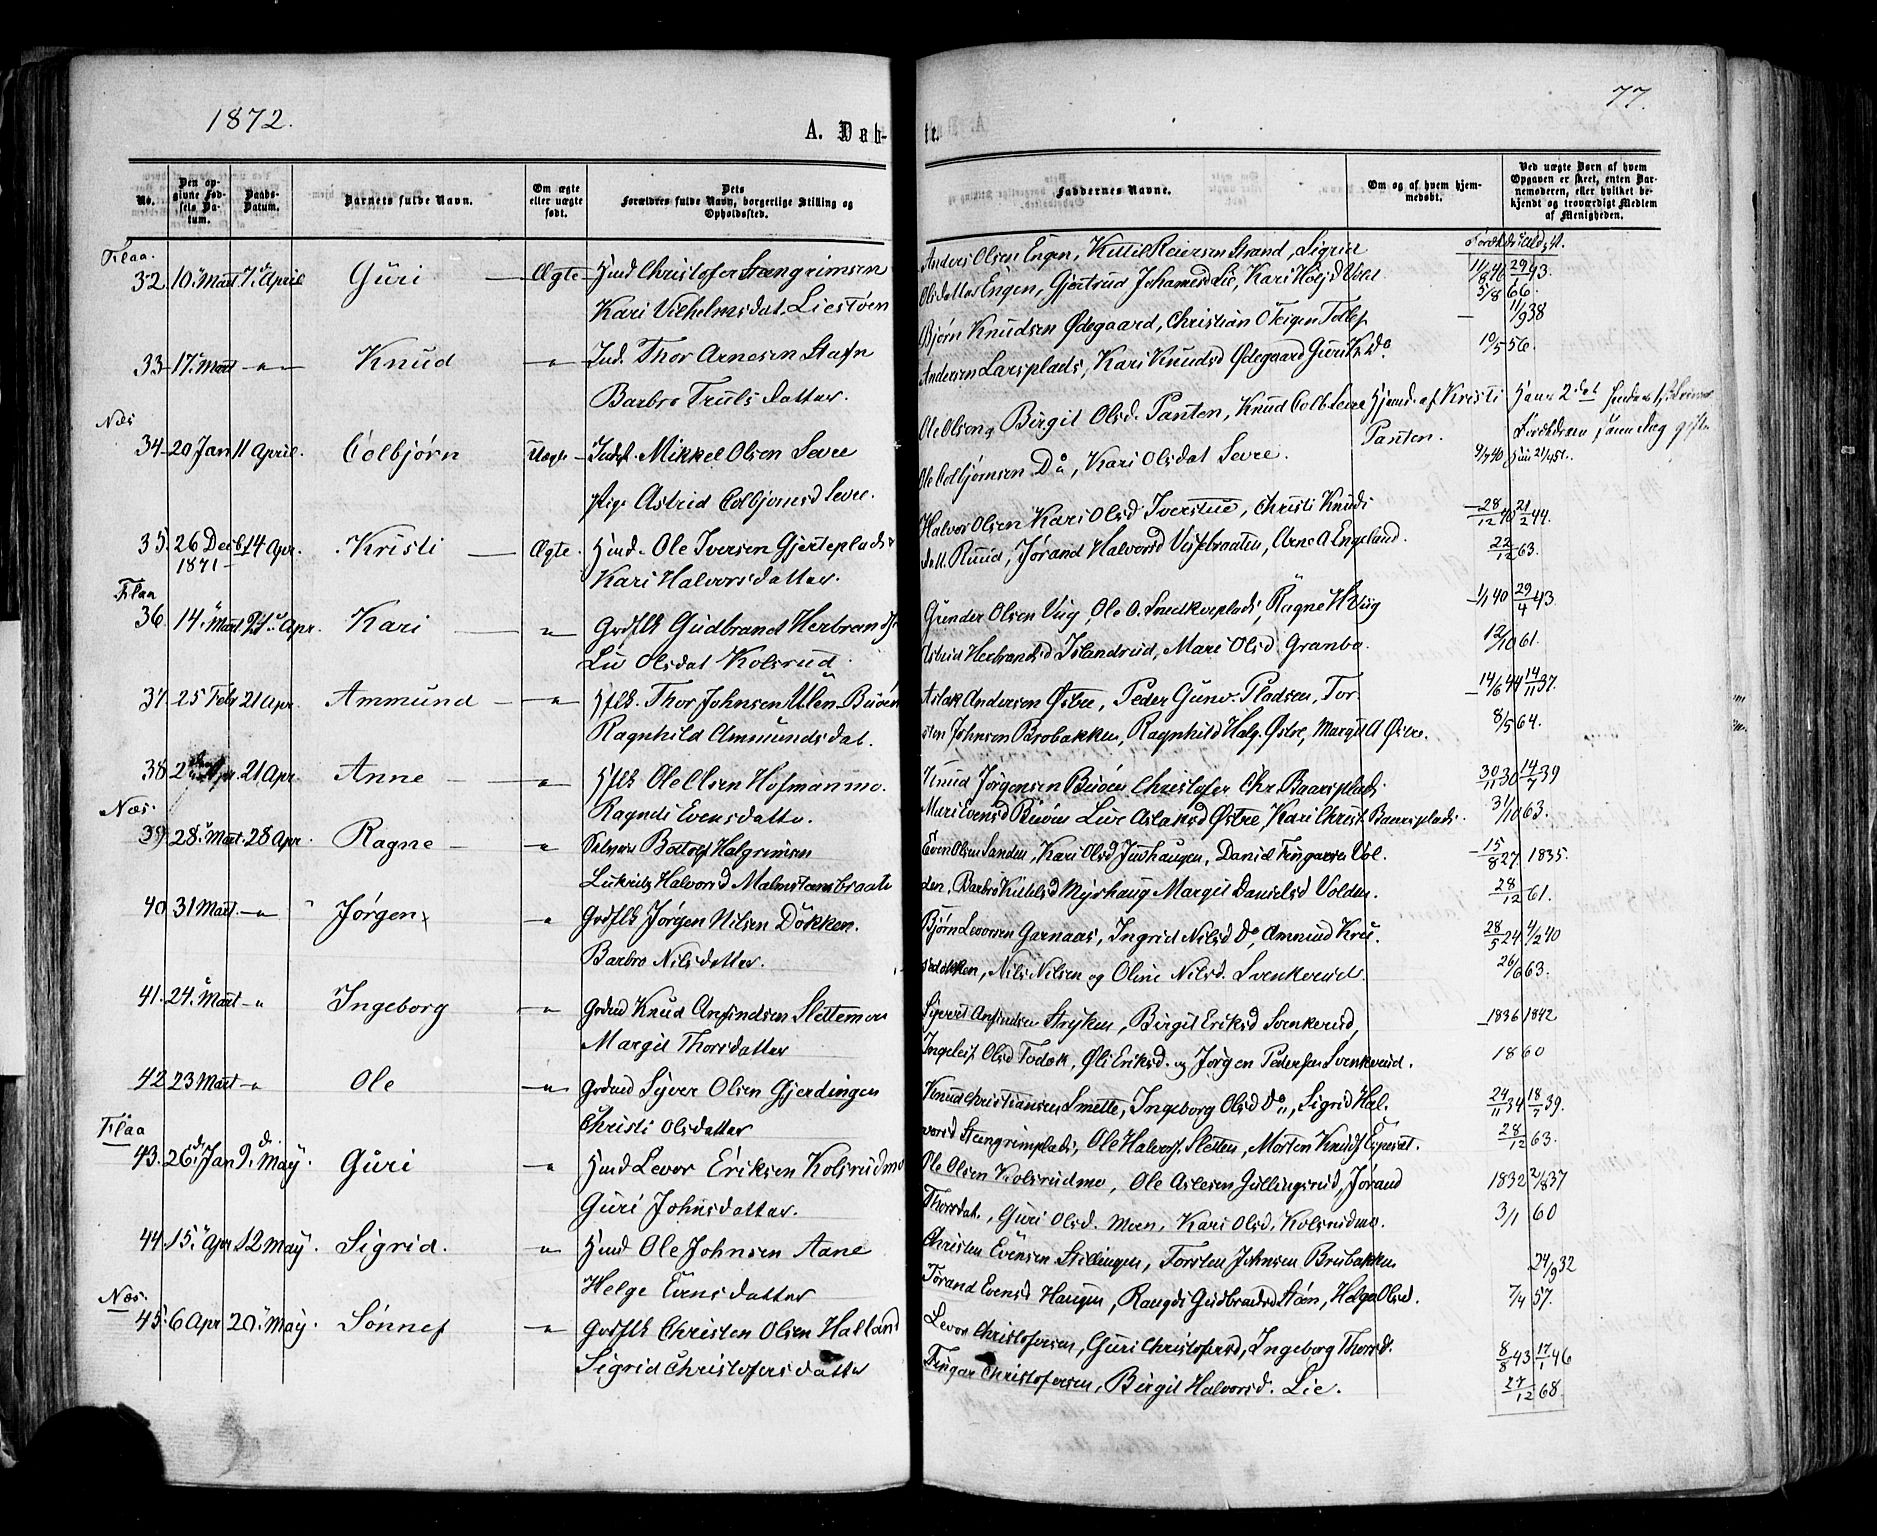 1872.
77.
A. Døb-
te.
No.
Den op-
givne Fød-
sels Da-
tum.
Daabs-
Datum.
Barnets fulde Navn.
Om ægte
eller uægte
født.
Dets
Forældres fulde Navn, borgerlige Stilling og
Opholdssted.
Faddernes Navne.
Om og af hvem hjem-
medøbt.
Ved uægte Barn af hvem
Opgaven er skeet, enten Bar-
nemoderen, eller hvilket be-
kjendt og troværdigt Medlem
af Menigheden.
Flaa.
32 10 Mart 7 April Guri Ægte Hmd Christofer Stengrimsen
Kari Vilhelmsdat. Liestøen
Anders Olsen Engen, Kittil Reiersen Strand, Sigrid
Olsdatter Engen, Gjertrud Johannesd Lie, Kari
11/8 46 29/ 43.
5/8 66.
33 17 Mart Knud Ind. Thor Arnesen Stafn
Barbro Truls datter.
Bjørn Knudsen Ødegaard, Christian
Andersen Larsplads, Kari Knudsd Ødegaard Guri K. Do
11/9 38
10/5 56.
Næs
34 20 Jan 11 April. Colbjørn Uægte Inds. Mikkel Olsen Sevre
Pige Astrid Colbjørnsd Sevre.
Ole Olsen og Birgit Olsd. Panten, Knud Colb Sevre
Ole Colbjørnsen Då, Kari Olsdat Sevre.
Hjemd. af Kristi
Panten.
Hans 2det
Forældrene
9/7 40
35. 26 Decb 14 Apr. Kristi Ægte. Hmd. Ole Iversen Gjerteplads
1871
Kari Halvorsdatter.
Halvor Olsen Kari Olsd Iverstue, Christi Knuds
datt. Ruud, Jørand Halvorsd, Arne A Engeland.
28/12 40 21/2 44.
22/12 63.
Flaa
36. 14. Mart 21 Apr. Kari Grdflk Gudbrand Herbrands
Liv Olsdat Kolsrud.
Gunder Olsen Vig, Ole O. Smedkveplads, Ragne H Viig
Astrid Herbrandsd Islandrud, Mari Olsd Granbo.
1/1 40 29/4 43.
12/10 61.
37. 25 Febr 21 Apr. Ammund Hflk. Thor Johnsen Ulen-Buøen
Ragnhild Ammundsdat.
Aslak Andersen Østre, Peder Gunv. Pladsen, Tor-
sten Johnsen Brobakken, Ragnhild Halg. Østre, Margit A Østre.
14/6 44 14/11 37.
8/5 64.
38 2 Apr 21 Apr. Anne Hflk Ole Olsen Hofmanmo.
Ragndi Evensdatter.
Knud Jørgensen Buøen Christofer Chr. Baarsplads
Mari Evensd Buøen Live Aslaksd Østre, Kari Christ. Baarsplads.
30/11 30 14/7 39
31/10 63.
Næs.
39 28 Mart. 28 Apr. Ragne Bottolf Halgrimsen
Halvorsd Malmstensbraate
Even Olsen Sanden, Kari Olsd Juvhaugen, Daniel Fingarsen Vol-
den, Barbro Kittilsd Myrhaug Margit Danielsd Volden.
15/8 27 1835.
28/12 61.
40 31 Mart. Jørgen Grdflk Jørgen Nilsen Dokken.
Barbro Nilsdatter.
Bjørn Levorsen Garnaas, Ingrid Nilsd Do, Ammund Kru-
sedokken, Nils Nilsen og Oline Nilsd. Svenkerud.
28/5 24 4/2 40
26/6 63.
41. 24. Mart Ingeborg Grdmd Knud Arnfindsen Slettemoen
Margit Thorsdatter
Syvert Anfindsen Stryken, Birgit Eriksd Svenkerud,
Ingeleif Olsd Todok, Øli Eriksd. og Jørgen Pedersen Svenkerud.
1836 1842
1860
42 23 Mart Ole Grdmd Syver Olsen Gjerdingen
Christi Olsdatter
Knud Christiansen Smette, Ingeborg Olsd Do, Sigrid Hal-
vorsd Stengrimplads, Ole Halvors. Sletten, Morten Knuds Espeset.
24/11 34 18/7 39.
28/12 63.
Flaa
43. 26. Jan 9. May. Guri Hmd Levor Eriksen Kolsrudmo
Guri Johnsdatter.
Ole Olsen Kolsrudmo, Ole Aslesen Gullingsrud, Jørand
Thorsdat., Guri Olsd. Moen, Kari Olsd. Kolsrudmo.
1832 2/8 37
3/1 60
44. 15. Apr 12 May. Sigrid. Hmd Ole Johnsen Aane
Helge Evensdatter
Christen Evensen Stillingen, Torsten Johnsen Brubakken
Tørand Evensd Haugen, Rangdi Gudbrandsd Støen, Helga Olsd.
24/9 32
7/4 57.
Næs.
45. 6 Apr 20. May. Sønnef Grdflk Christen Olsen Halland
Sigrid Christofersdatter
Levor Christofersen, Guri Christofersd, Ingeborg Thorsd.
Fingar Christofersen, Birgit Halvorsd. Lie.
8/8 43 17/1 46
27/12 68.